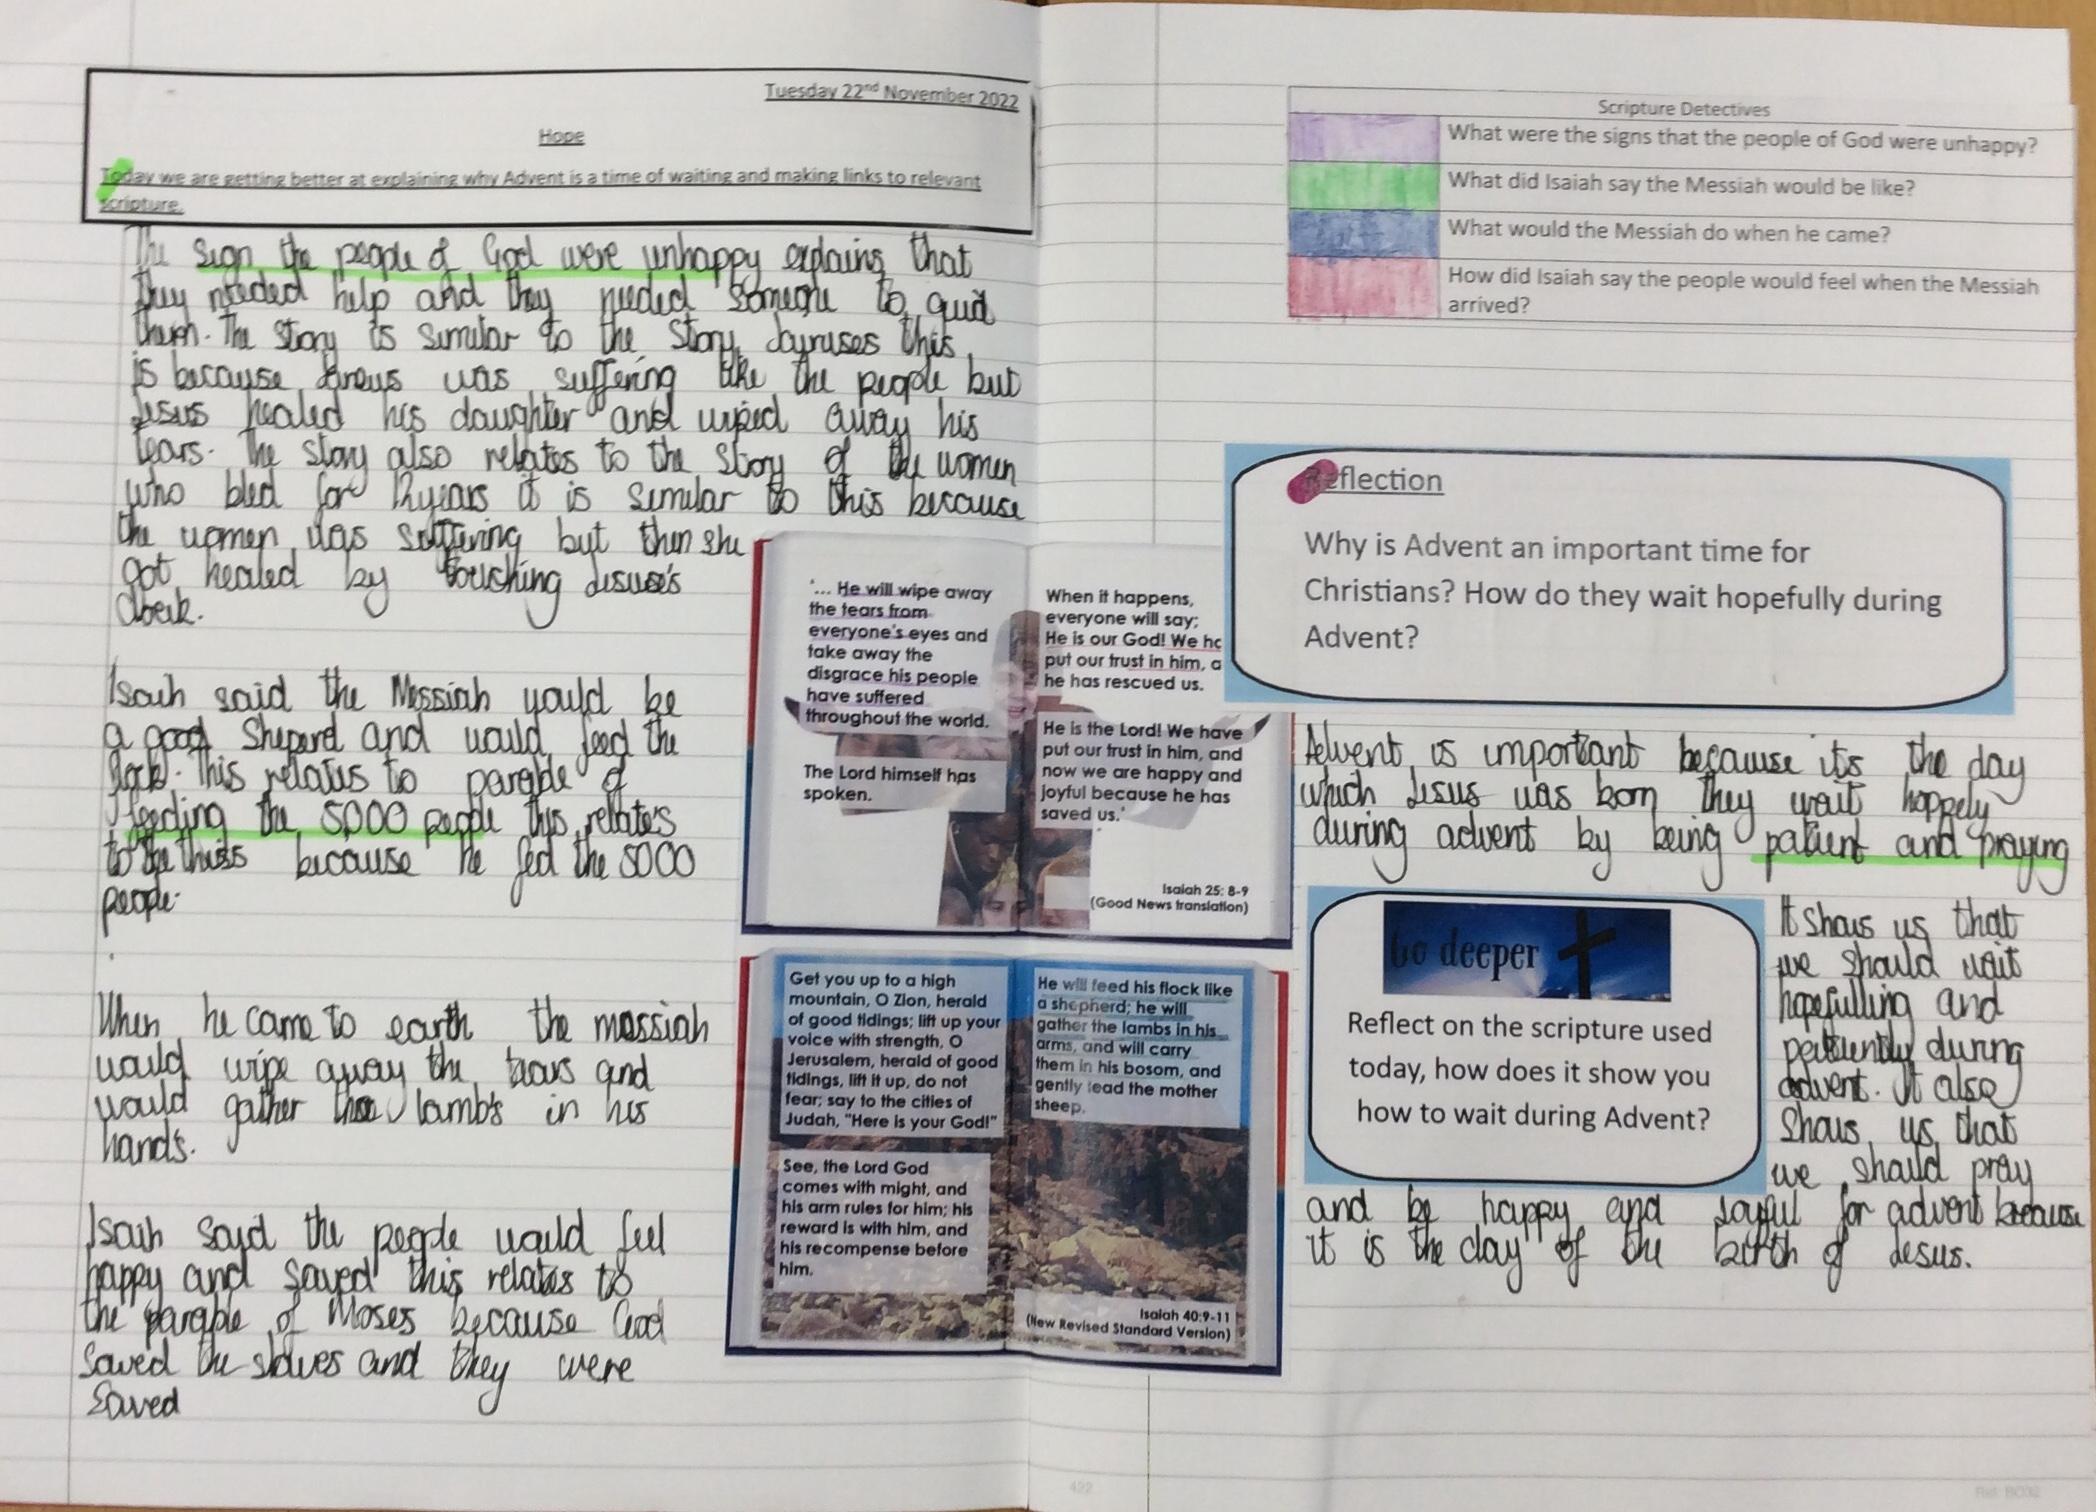 Tuesday 22nd November 2022
Hope
Today we are getting better at explaining why Advent is a time of waiting and making links to relevant
scripture.
The sign the people of God were unhappy explains that
they needed help and they needed someone to guid
them. The story is similar to the story Jayruses this
is because Jireus was suffering like the people but
Jesus healed his daughter and wiped away his
tears. The story also relates to the story of the women
who bled for 12years it is similar to this because
the women was suffering but then she
got healed by touching Jesuse's
cloak.
Isaih said the Messiah would be
a good Sheperd and would feed the
flock. This relates to parable of
feeding the 5000 people this relates
to the because he fed the 5000
people.
When he came to earth the messiah
would wipe away the tears and
would gather the lamb's in his
hands.
Isaih said the people would feel
happy and saved this relates to
the parable of Moses because God
saved the slaves and they were
saved
'... He will wipe away
the tears from
everyone's eyes and
take away the
disgrace his people
have suffered
throughout the world.
The Lord himself has
spoken.
When it happens,
everyone will say:
He is our God! We ha
put our trust in him, a
he has rescued us.
He is the Lord! We have
put our trust in him, and
now we are happy and
joyful because he has
saved us.'
Isaiah 25: 8-9
(Good News translation)
Get you up to a high
mountain, O Zion, herald
of good tidings; lift up your
voice with strength, O
Jerusalem, herald of good
tidings, lift it up, do not
fear; say to the cities of
Judah, "Here is your God!"
See, the Lord God
comes with might, and
his arm rules for him; his
reward is with him, and
his recompense before
him.
He will feed his flock like
a shepherd; he will
gather the lambs in his
arms, and will carry
them in his bosom, and
gently lead the mother
sheep.
Isaiah 40:9-11
(New Revised Standard Version)
Scripture Detectives
What were the signs that the people of God were unhappy?
What did Isaiah say the Messiah would be like?
What would the Messiah do when he came?
How did Isaiah say the people would feel when the Messiah
arrived?
Reflection
Why is Advent an important time for
Christians? How do they wait hopefully during
Advent?
Advent is important because its the day
which Jesus was born they wait hoppely
during advent by being patient and praying
Go deeper
Reflect on the scripture used
today, how does it show you
how to wait during Advent?
It shows us that
we should wait
hopefulling and
during
advent. It also
shows us that
we should pray
and be happy and joyful for advent because
it is the day of the birth of Jesus.
422